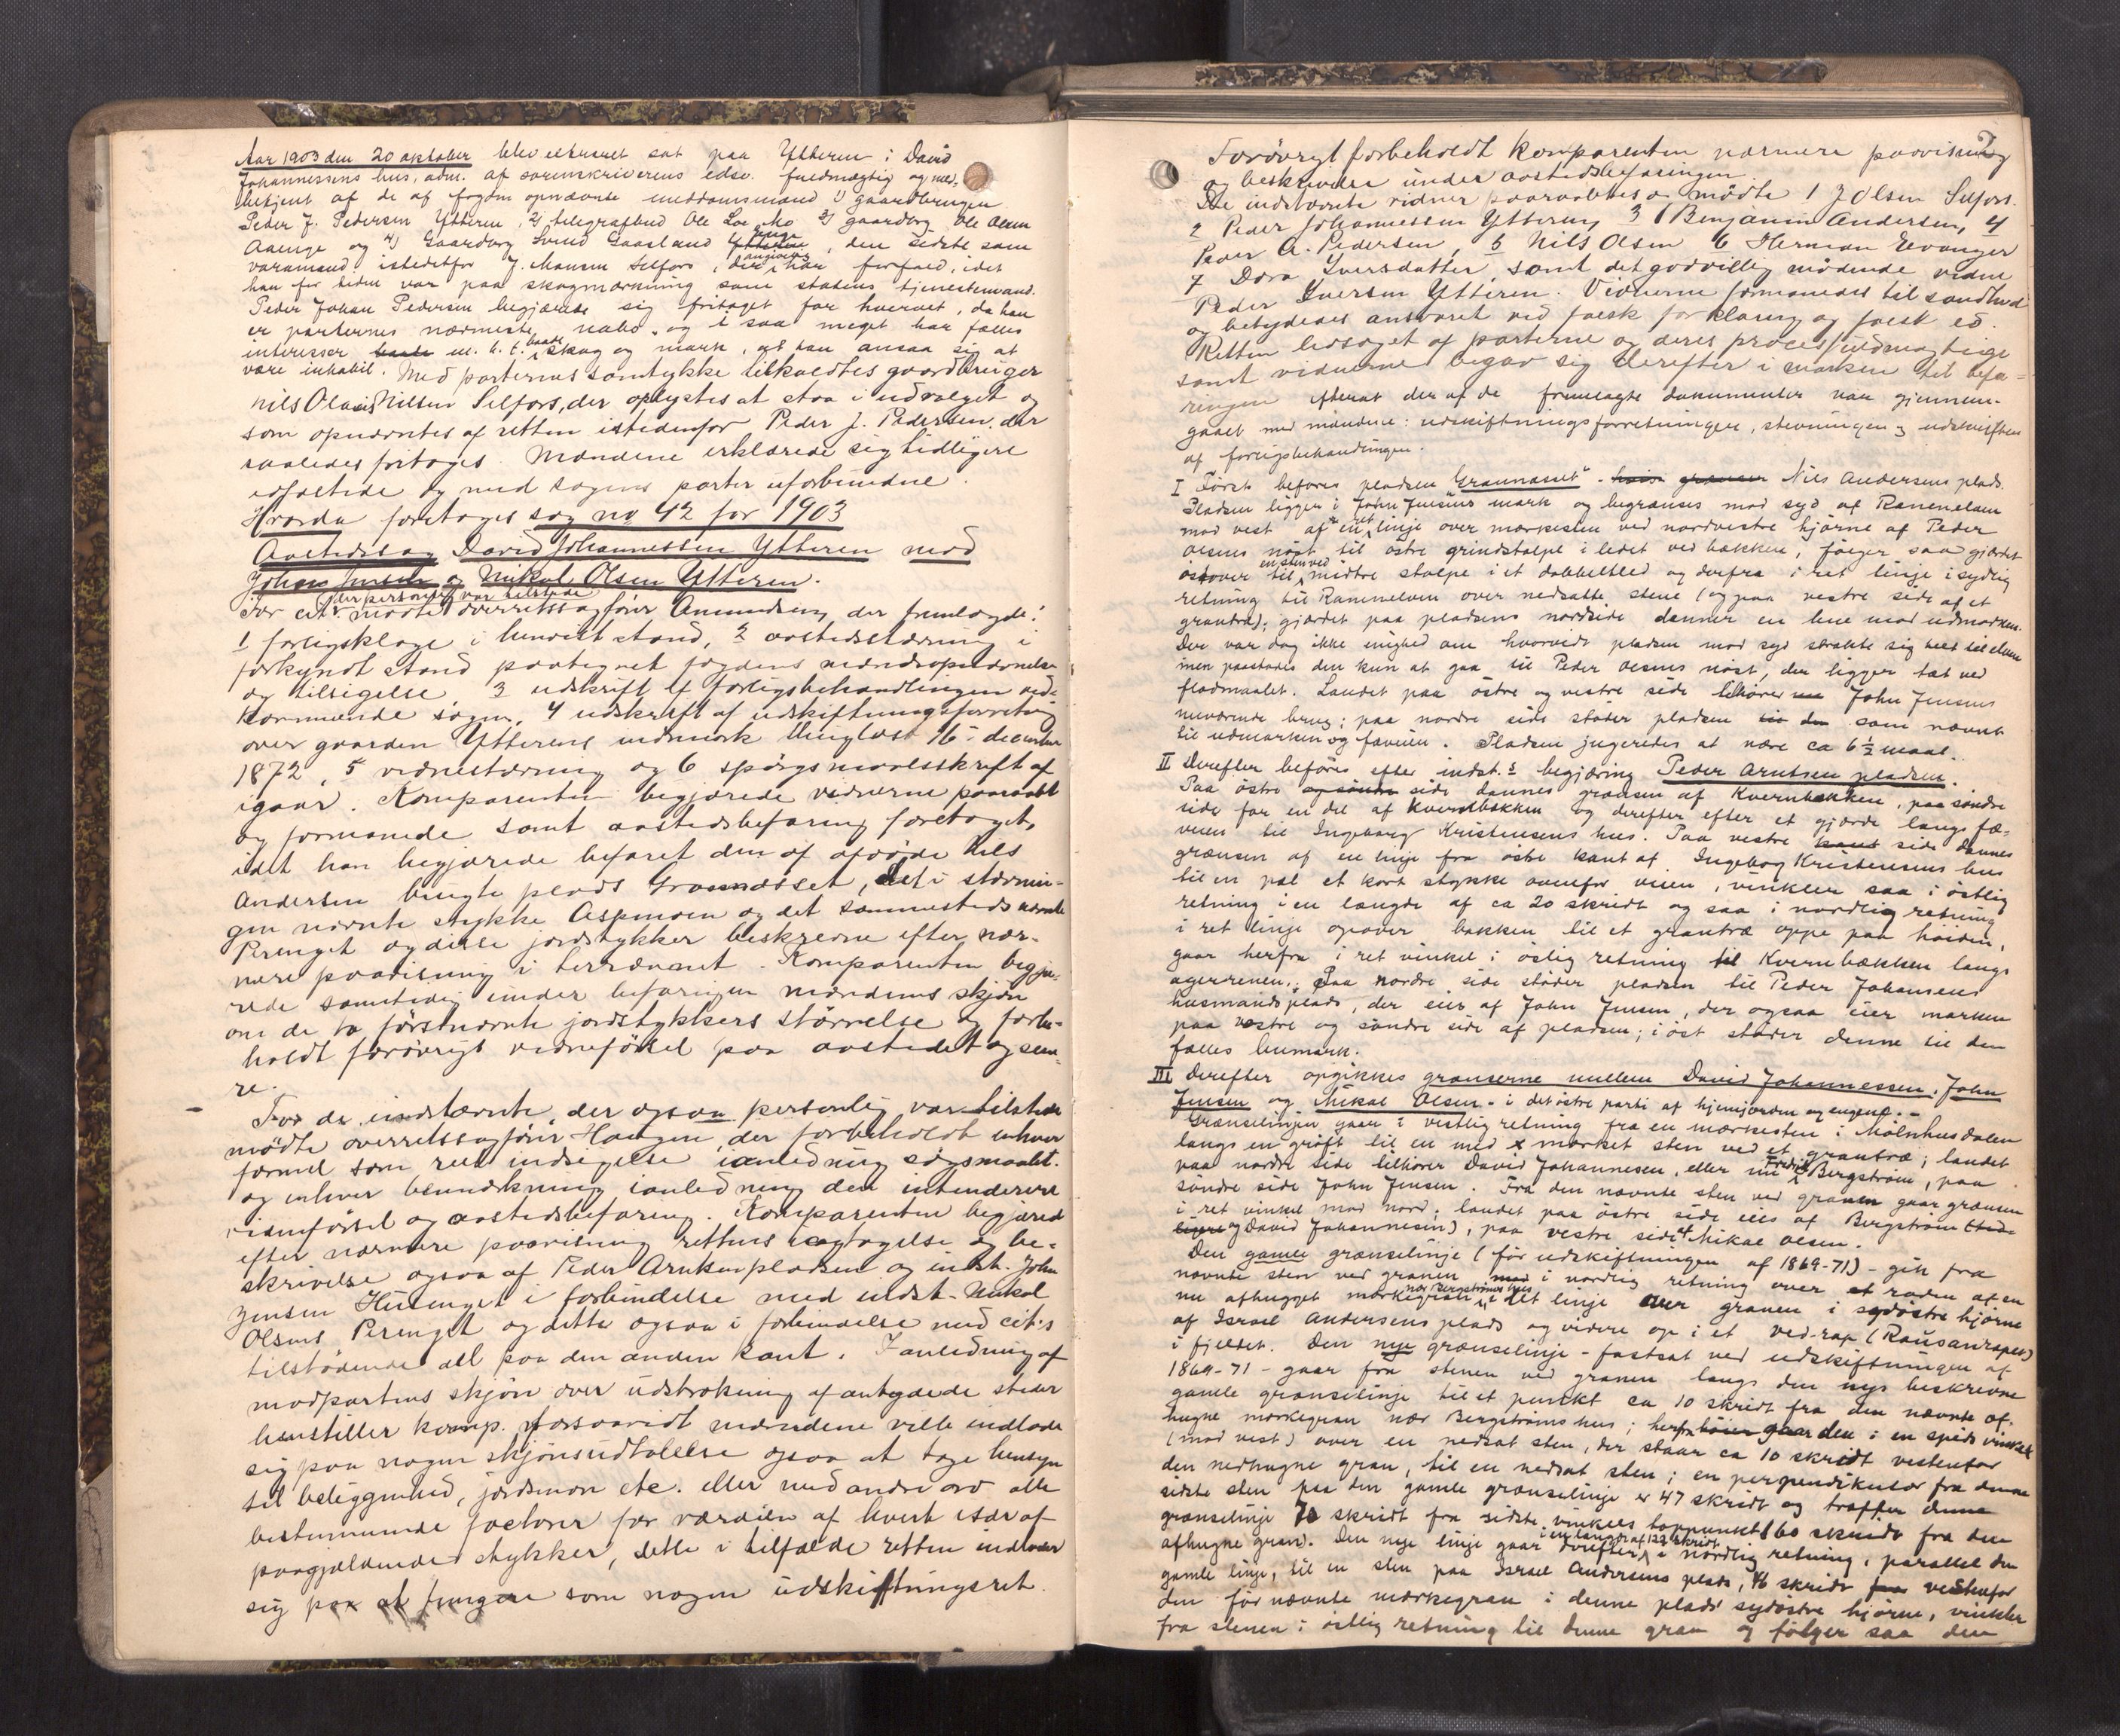 Aar 1903 den 20 oktober blev extraret sat paa Ytteren i David
Johannessens hus, adm. af sorenskriverens edsv. fuldmægtig og med-
betjent af de af fogden opnævnte meddomsmænd 1) gaardbruger
Peder J. Pedersen Ytteren, 2) telegrafbud Ole Mo 3) gaardbrg. Ole Olsen
Aaenge og 4) Gaardbrg Svend Gaasland, den sidste som
varamand istedetfor J. Monsen Selfors, der angivelig har forfald, idet
han for tiden var paa skogmærkning som statens tjenestemand.
Peder Johan Pedersen begjærede sig fritaget for hvervet, da han
er parternes nærmeste nabo og i saa meget har fælles
interesser m. h. t. baade skog og mark, at han ansaa sig at
være inhabil. Med parternes samtykke tilkaldtes gaardbruger
Nils Olai Nilsen Selfors, der oplystes at staa i udvalget og
som opnævntes af retten istedenfor Peder J. Pedersen, der
saaledes fritoges. Mændene erklærede sig tidligere
edfæstede og med sagens parter uforbundne.
Hvorda foretoges sag no 42 for 1903
Aastedssag David Johannessen Ytteren mod
Johan Jensen og Mikal Olsen Ytteren.
der personlig var tilstede
For cit. mødte overretssagfører Amundsen, der fremlagde:
1 forligsklage i henvist stand, 2 aastedsstævning i
forkyndt stand paategnet fogdens mændsopnævnelse
og tilsigelse, 3 udskrift af forligsbehandlingen ved-
kommende sagen, 4 udskrift af udskiftningsforretning
over gaarden Ytterens indmark thinglæst 16 december
1872, 5 vidnestævning og 6 spørgsmaalsskrift af
igaar. Komparenten begjærede vidnerne paaraabt
og formanede samt aastedsbefaring foretaget,
idet han begjærede befaret den af afdøde Nils
Andersen brugte plads Grannæsset, det i stævnin-
gen nævnte stykke Aspmoen og det sammesteds nævnte
Perenget og disse jordstykker beskrevne efter nær-
mere paavisning i terrænet. Komparenten begjæ-
rede samtidig under befaringen mændenes skjøn
om de to førstnævnte jordstykkers størrelse og forbe-
holdt forøvrigt vidneførsel paa aastedet og sene-
re.
For de indstævnte, der ogsaa personlig var tilstede
mødte overretssagfører Haugen, der forbeholdt enhver
formel som reel indsigelse i anledning søgsmaalet.
og enhver bemærkning i anledning den intenderede
vidneførsel og aastedsbefaring. Komparenten begjæred
efter nærmere paavisning rettens iagtagelse og be-
skrivelse ogsaa af Peder Arntsenpladsen og indst. John
Jensen Husenget i forbindelse med indst. Mikal
Olsens Perenget og dette ogsaa i forbindelse med cit.s
tilstødende del paa den anden kant. I anledning af
modpartens skjøn over udstrækning af antydede steder
henstiller komp. forsaavidt mændene ville indlade
sig paa nogen skjønsudtalelse ogsaa at tage hensyn
til beliggenhed, jordsmon etc. eller med andre ord alle
bestemmende factorer for værdien af hvert især af
paagjældende stykker, dette i tilfælde retten indlader
sig paa at fungere som nogen udskiftningsret.
2
Forøvrigt forbeholdt komparenten nærmere paavisning
og beskrivelse under aastedsbefaringen.
De indstævnte vidner paaraabtes og mødte 1 J Olsen Selfors
2 Peder Johannessen Ytteren, 3 Benjamin Andersen, 4
Peder A. Pedersen, 5 Nils Olsen 6 Herman Evanger
7 Dora Iversdatter, samt det godvillig mødende vidne
Peder Iversen Ytteren. Vidnerne formanedes til sandhed
og betydedes ansvaret ved falsk forklaring og falsk ed.
Retten ledsaget af parterne og deres procesfuldmægtige
samt vidnerne begav sig derefter i marken til befa-
ringen efterat der af de fremlagte dokumenter var gjennem-
gaaet med mændene: udskiftningsforretningen, stevningen og udskriften
af forligsbehandlingen.
I Først befores pladsen "Grannæsset" - Nils Andersens plads.
Pladsen ligger i John Jensens mark og begrænses mod syd af Ranenelven
mod vest af en ret linje over mærkesten ved nordvestre hjørne af Peder
Olsens nøst til østre grindstolpe i ledet ved bakken, følger saa gjærdet
østover til en sten ved midtre stolpe i et dobbeltled og derfra i ret linje i sydlig
retning til Ranenelven over nedsatte stene (og paa vestre side af et
grantræ); gjærdet paa pladsens nordside danner en linie mod udmarken.
Der var dog ikke enighed om hvorvidt pladsen mod syd strakte sig helt til elven
men paastodes den kun at gaa til Peder Olsens nøst, der ligger tæt ved
flodmaalet. Landet paa østre og vestre side tilhører John Jensens
nuværende brug; paa nordre side støder pladsen som nævnt
til udmarken og fæveien. Pladsen jugeredes at være ca 6½ maal.
II Derefter beføres efter indst.s begjæring Peder Arntsen pladsen.
Paa østre side dannes grænsen af Kvernbækken, paa søndre
side for en del af kvernbækken og derefter efter et gjærde langs fæ-
veien til Ingeborg Kristensens hus. Paa vestre side dannes
grænsen af en linje fra østre kant af Ingeborg Kristensens hus
til en pæl et kort stykke ovenfor veien, vinkler saa i østlig
retning i en længde af ca 20 skridt og saa i nordlig retning
i ret linje opover bakken til et grantræ oppe paa høiden,
gaar herfra i ret vinkel i østlig retning til Kvernbækken langs
agerrenen. Paa nordre side støder pladsen til Peder Johansens
husmandsplads, der eies af John Jensen, der ogsaa eier marken
paa vestre og søndre side af pladsen; i øst støder denne til den
fælles humark.
III Derefter opgikkes grænserne mellem David Johannessen, John
Jensen og Mikal Olsen - i det østre parti af hjemjorden og engene. -
Grænselinjen gaar i vestlig retning fra en mærkesten i Mølnhusdalen
langs en grøft til en med x mærket sten ved et grantræ; landet
paa nordre side tilhører David Johannesen, eller nu Fredrik Bergstrøm, paa
søndre side John Jensen. Fra den nævnte sten ved granen gaar grænsen
i ret vinkel mod nord; landet paa østre side eies af Bergstrøm
og David Johannesen), paa vestre side af Mikal Olsen.
Den gamle grænselinje (før udskiftningen af 1869-71) - gik fra
nævnte sten ved granen i nordlig retning over roden af en
nu afhugget mærkegran nær Bergstrøms hus i ret linje over granen i sydøstre hjørne
af Israel Andersens plads og videre op i et ved-rap (Rausandrapet)
i fjeldet. Den nye grænselinje - fastsat ved udskiftningen af
1869-71 - gaar fra stenen ved granen langs den nys beskrevne
gamle grænselinje til et punkt ca 10 skridt fra den nævnte af-
hugne mærkegran nær Bergstrøms hus; herfra gaar den i en spids vinkel
(mod vest) over en nedsat sten, der staar ca 10 skridt vestenfor
den nedhugne gran, til en nedsat sten; en perpendikulær fra denne
sidste sten paa den gamle grænselinje er 47 skridt og træffer denne
grænselinje 70 skridt fra sidste vinkels toppunkt (60 skridt fra den
afhugne gran). Den nye linje gaar derefter i en længde af 122 skridt i nordlig retning, parallel den
gamle linje, til en sten paa Israel Andersens plads, 46 skridt vestenfor
den før nævnte mærkegran i denne plads' sydøstre hjørne, vinkler
fra stenen i østlig retning til denne gran og følger saa den